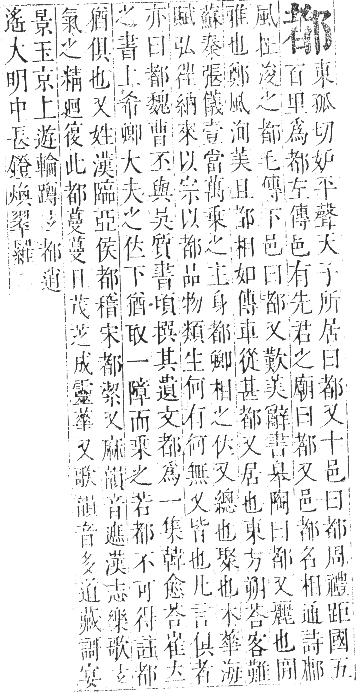 都
東孤切妒平聲天子所居曰都又十邑曰都周禮距國五
百里爲都左傳邑有先君之廟曰都又邑都名相通詩鄘
風在浚之都毛傳下邑曰都又歎美辭書皋陶曰都又麗也閒
雅也鄭風洵美且都相如傳車從甚都又居也東方朔荅客難
蘇秦張儀壹當萬乘之主身都卿相之位又總也聚也木華海
賦弘往納來以宗以都品物類生何有何無又皆也凡言俱者
亦曰都魏曹丕與吳質書頃撰其遺文都爲一集韓愈荅崔立
之書上希卿大夫之位下猶取一障而乘之若都不可得註都
猶俱也又姓漢臨亞侯都稽宋都潔又麻韻音遮漢志樂歌玄
氣之精迴復此都蔓蔓日茂芝成靈華又歌韻音多道藏謌宴
景玉京上遊輪躋玄都逍
遙大明中長燈煥翠羅